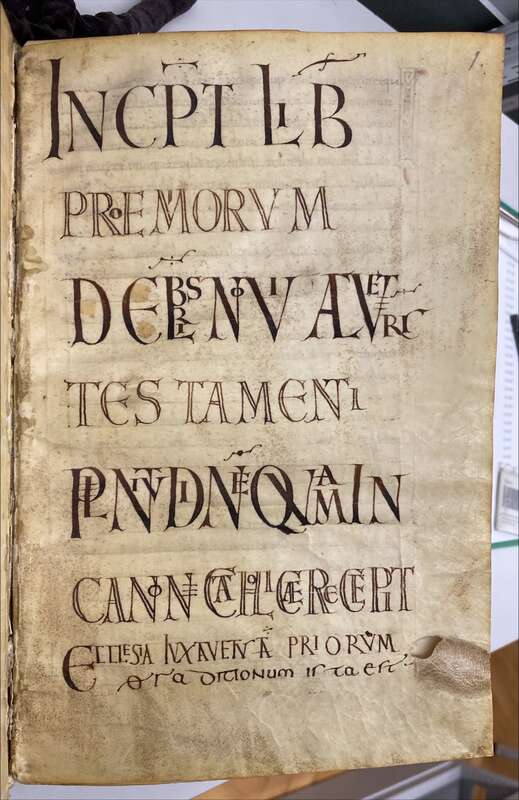 1.
INCPT LIB
PROEMORVM
DE LIBRS NOVI AC VETRIS
TESTAMENTI
PLENITVDINE QVAM IN
CANONE CATHOLICAE RECEPIT
ECLESIA IVXTA VETERA PRIORVM
traDITIONUM ISTA EST